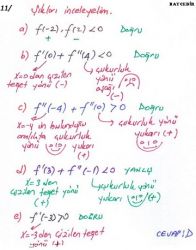 11/ Şıkları inceleyelim.
a) f(-2) . f(2) < 0 Doğru
+ -
b) f'(0) + f''(4) < 0 Doğru
x=0'dan çizilen teğet yönü (-)
çukurluk yönü aşağı (-)
c) f''(-4) + f''(0) > 0 Doğru
x=-4 ün bulunduğu aralıkta çukurluk yönü yukarı (+)
çukurluk yönü yukarı (+)
d) f'(3) + f''(-1) < 0 YANLIŞ
x=3'den çizilen teğet yönü (+)
çukurluk yönü yukarı (+)
e) f'(-3) > 0 DOĞRU
x=-3'den çizilen teğet yönü (+)
CEVAP: D